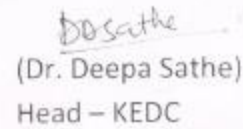 DDSathe
(Dr. Deepa Sathe)
Head – KEDC